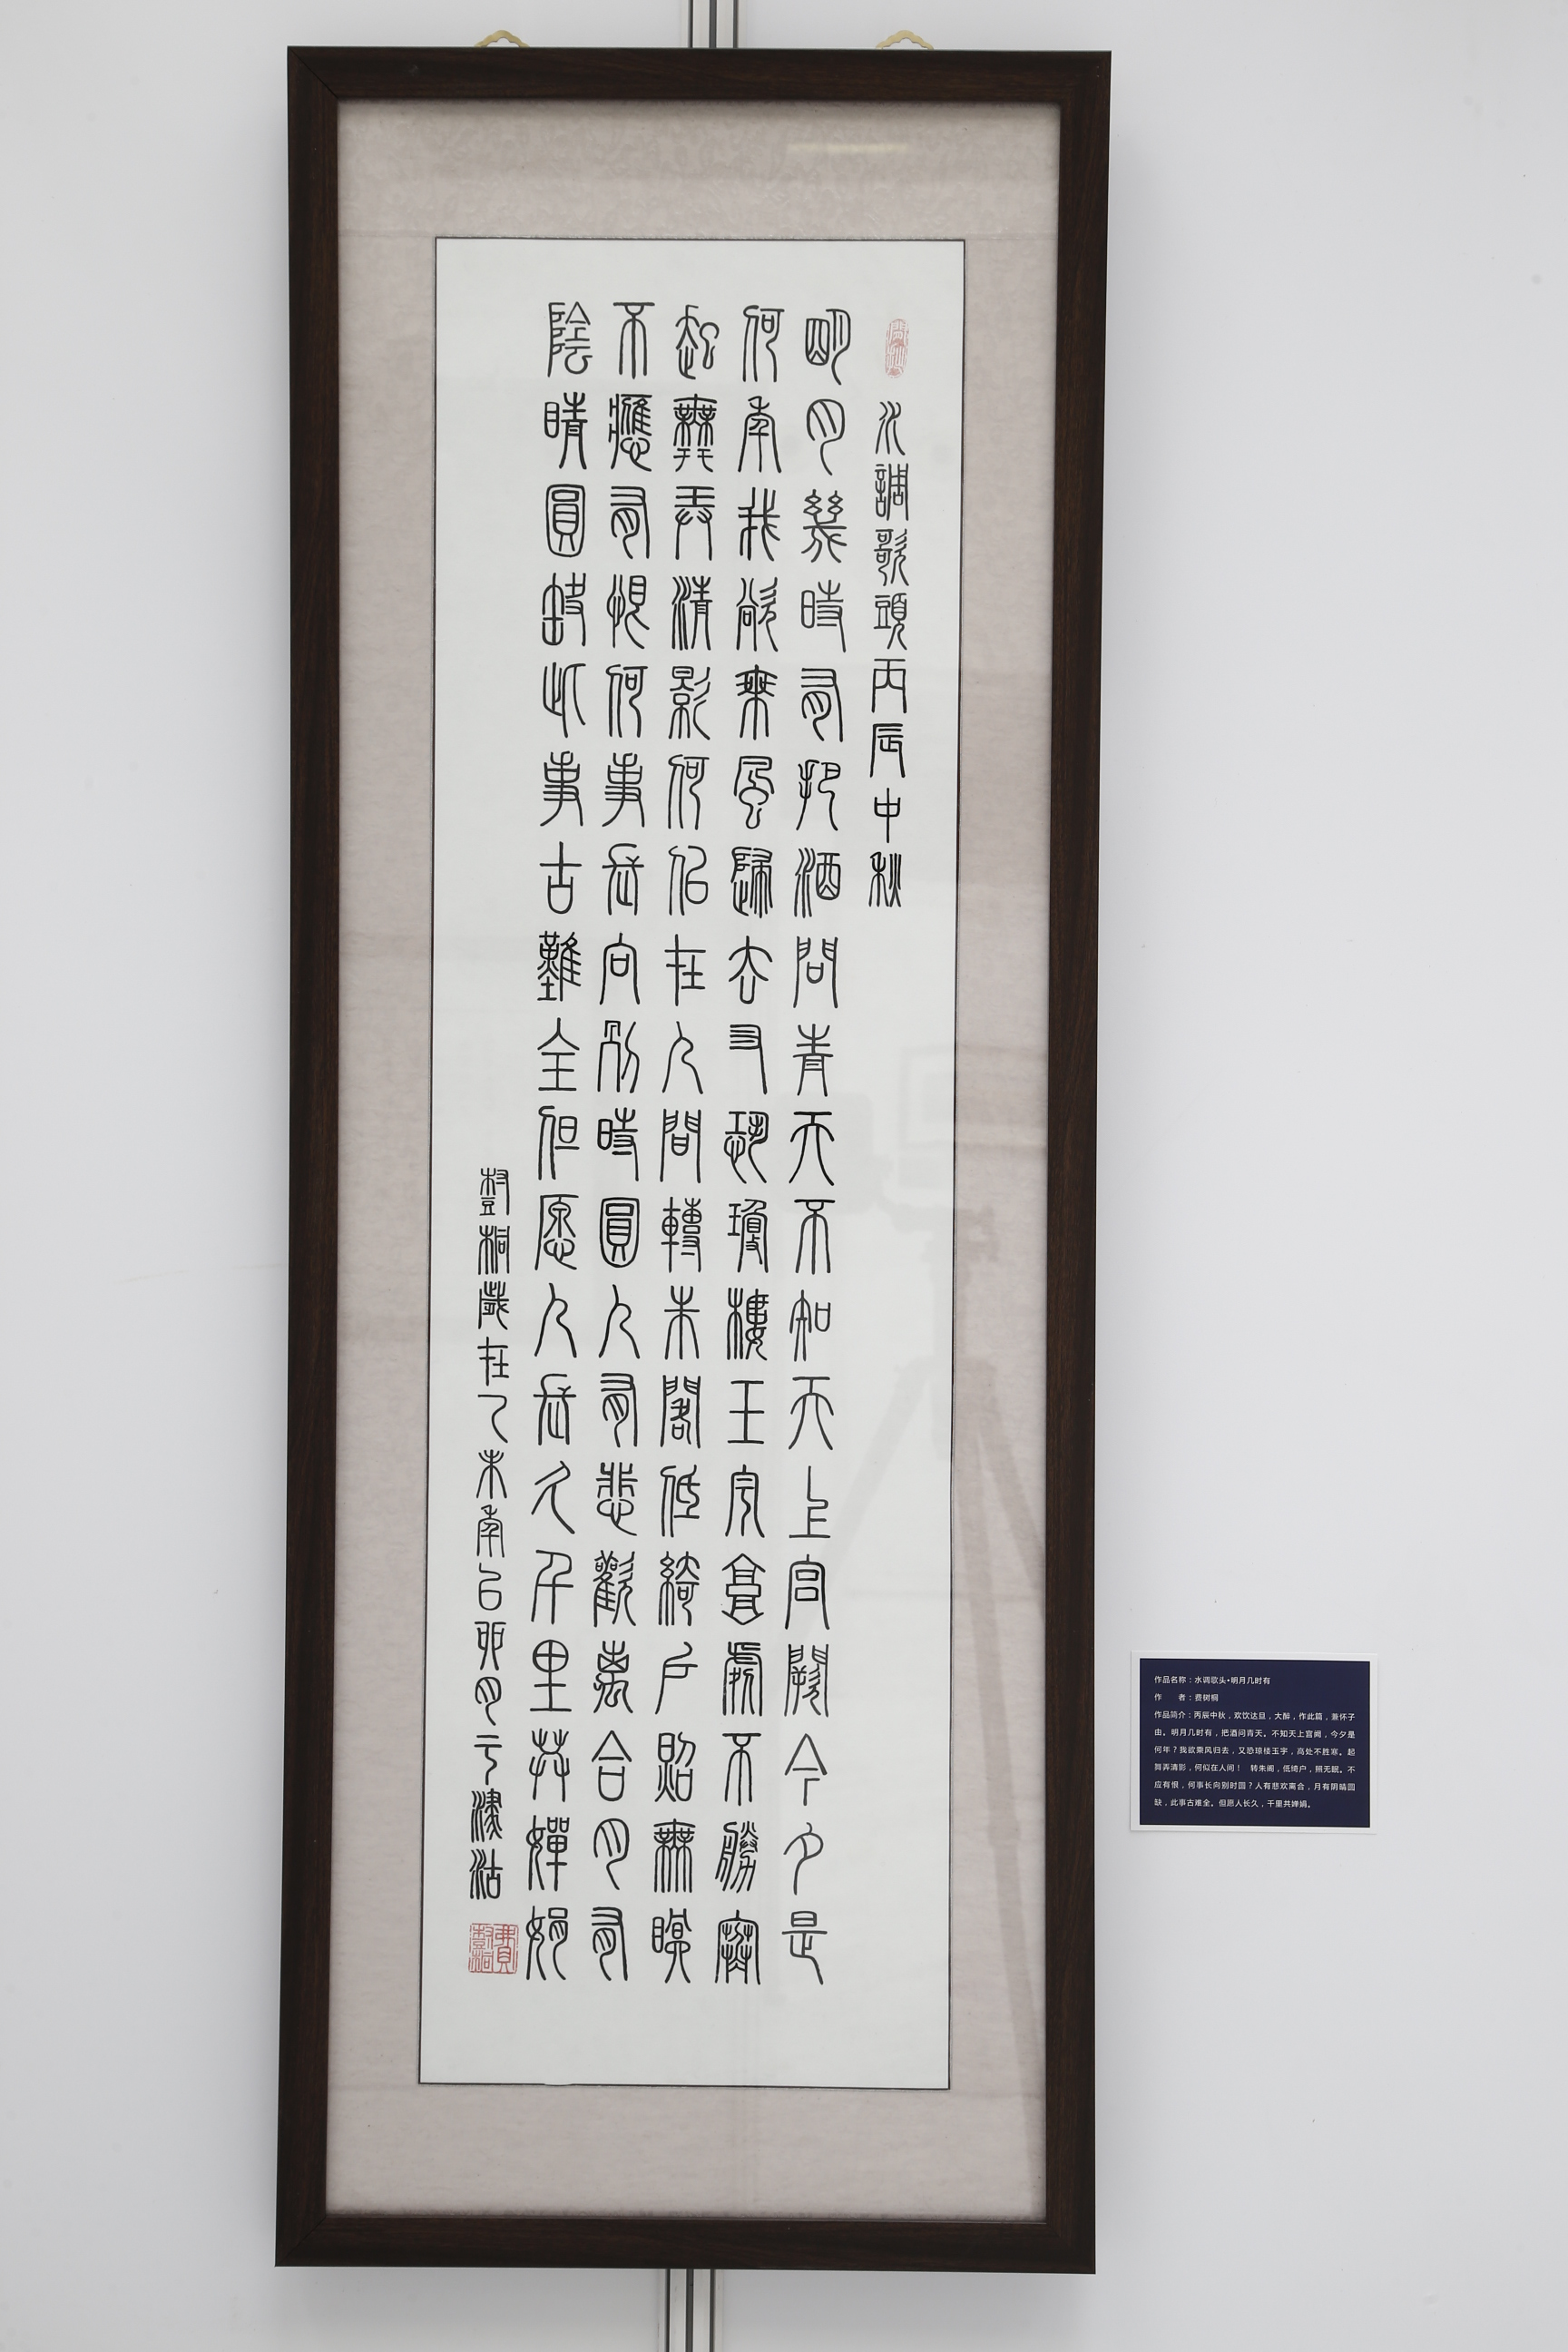 水調歌頭丙辰中秋
明月幾時有把酒問青天不知天上宮闕今夕是
何年我欲乘風歸去又恐瓊樓玉宇高處不勝寒
起舞弄清影何似在人間轉朱閣低綺戶照無眠
不應有恨何事長向別時圓人有悲歡离合月有
陰晴圓缺此事古難全但愿人長久千里共嬋娟
樹桐歲在乙未年己卯月于津沽
費樹桐
作品名称：水调歌头•明月几时有
作　　者：费树桐
作品简介：丙辰中秋，欢饮达旦，大醉，作此篇，兼怀子
由。明月几时有，把酒问青天。不知天上宫阙，今夕是
何年？我欲乘风归去，又恐琼楼玉宇，高处不胜寒。起
舞弄清影，何似在人间！　转朱阁，低绮户，照无眠。不
应有恨，何事长向别时圆？人有悲欢离合，月有阴晴圆
缺，此事古难全。但愿人长久，千里共婵娟。